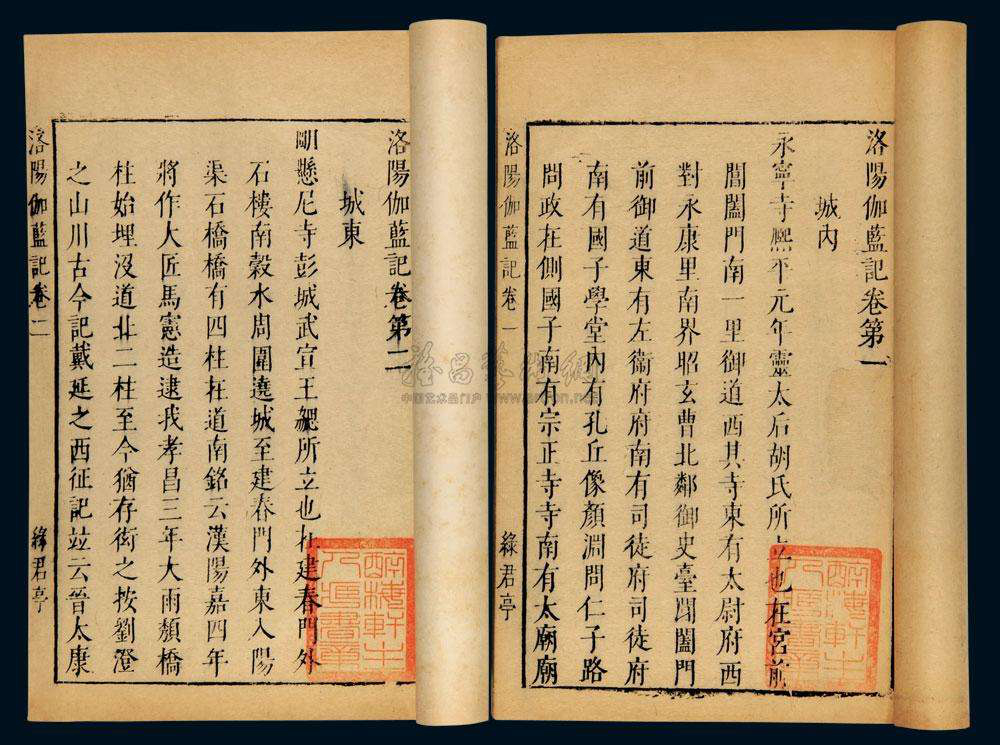 洛陽伽藍記卷第一
城内
永寧寺熈平元年靈太后胡氏所立也在宮前
閶闔門南一里御道西其寺東有太尉府西
對永康里南界昭玄曹北鄰御史臺閶闔門
前御道東有左衞府府南有司徒府司徒府
南有國子學堂内有孔丘像顏淵問仁子路
問政在側國子南有宗正寺寺南有太廟廟
洛陽伽藍記卷一
綠君亭
洛陽伽藍記卷第二
城東
明懸尼寺彭城武宣王勰所立也在建春門外
石樓南穀水周圍遶城至建春門外東入陽
渠石橋橋有四柱在道南銘云漢陽嘉四年
將作大匠馬憲造逮我孝昌三年大雨頽橋
柱始埋没道北二柱至今猶存衒之按劉澄
之山川古今記戴延之西征記竝云晉太康
洛陽伽藍記卷二
綠君亭